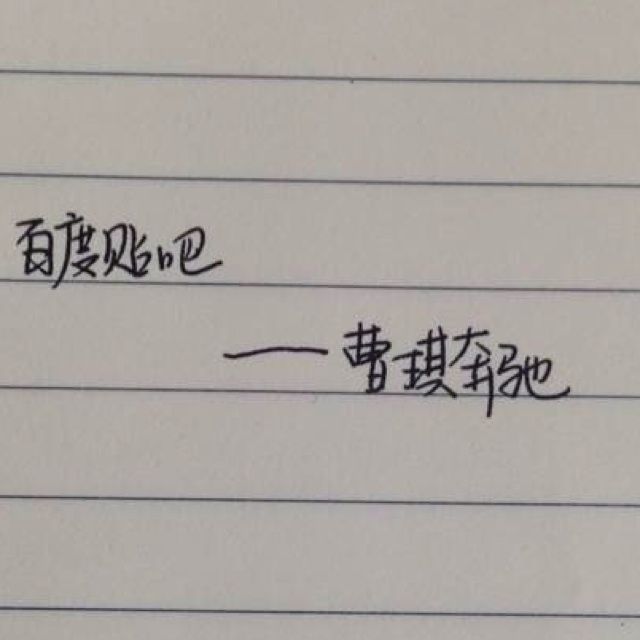 百度贴吧
——曹琪奔驰